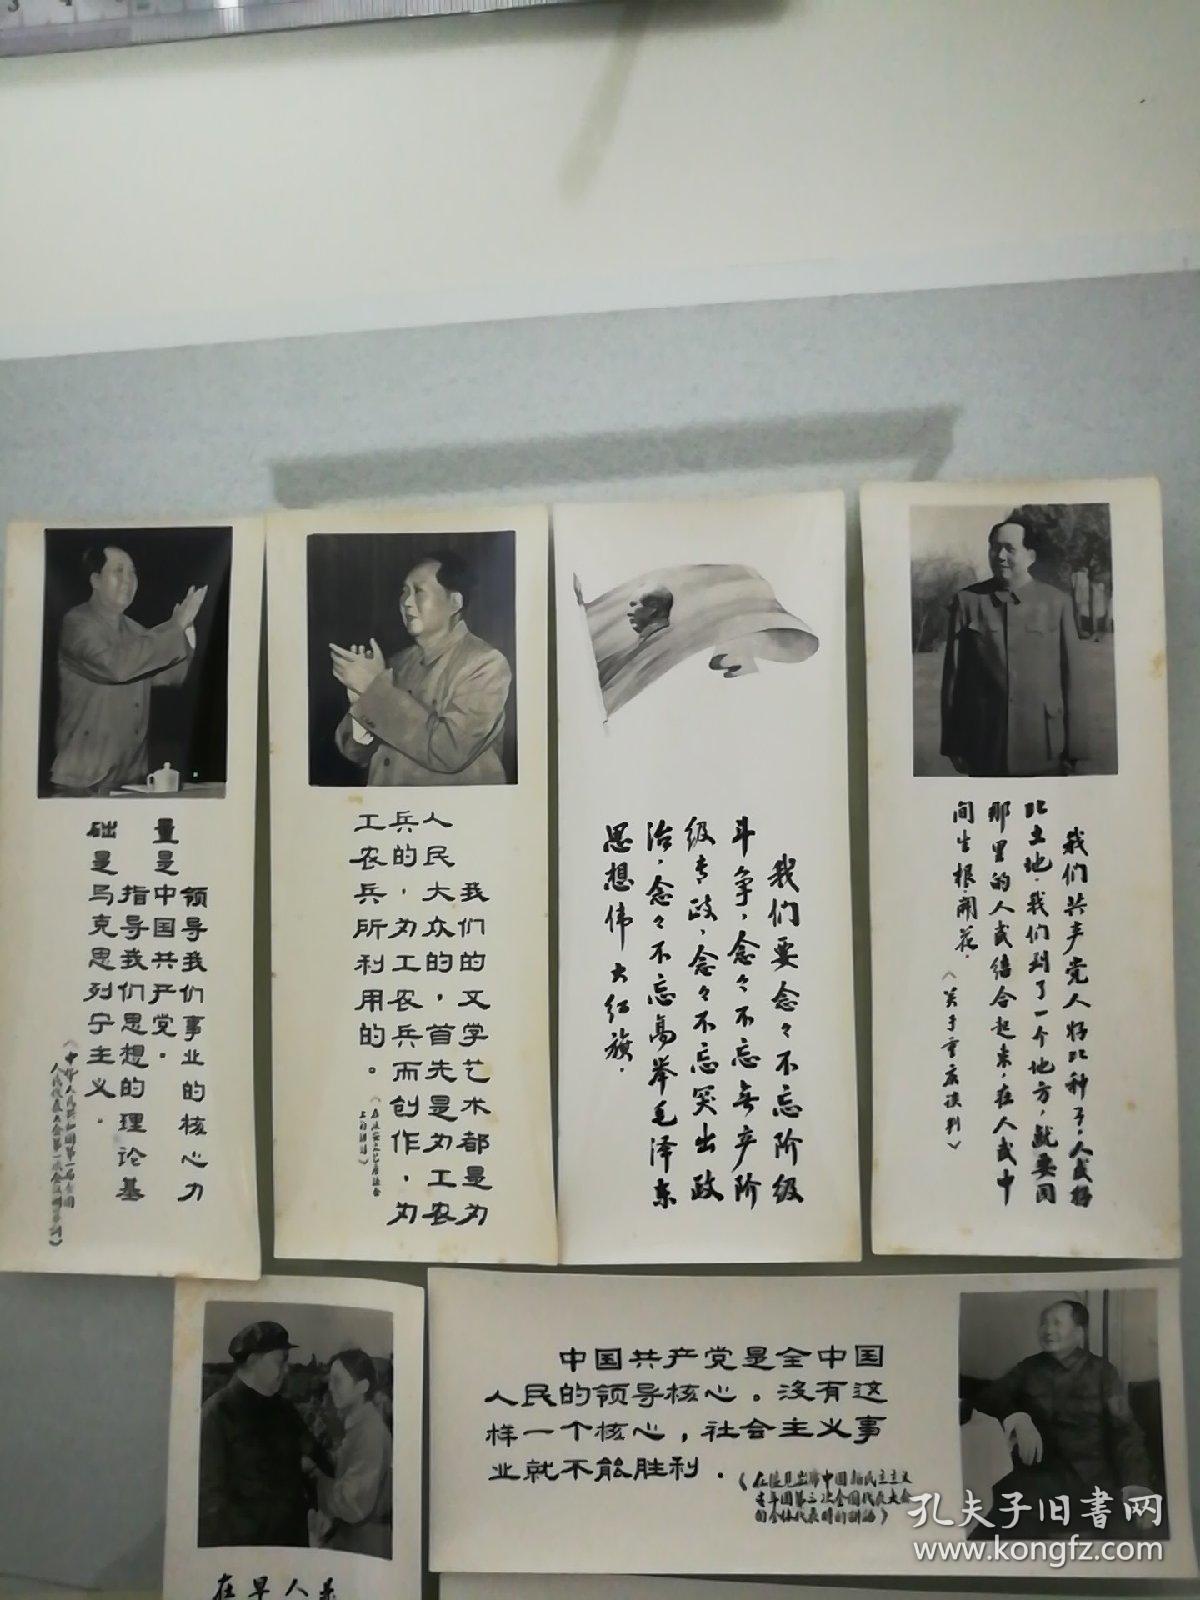 3 4
领导我们事业的核心力
量是中国共产党。
指导我们思想的理论基
础是马克思列宁主义.
《中华人民共和国第一届全国
人民代表大会第一次会议开幕词》
我们的文学艺术都是为
人民大众的,首先是为工农
兵的,为工农兵而创作,为
工农兵所利用的。
《在延安文艺座谈会
上的讲话》
我们要念々不忘阶级
斗争,念々不忘无产阶
级专政,念々不忘突出政
治,念々不忘高举毛泽东
思想伟大红旗.
我们共产党人好比种子,人民好
比土地.我们到了一个地方,就要同
那里的人民结合起来,在人民中
间生根、开花.
《关于重庆谈判》
中国共产党是全中国
人民的领导核心。没有这
样一个核心,社会主义事
业就不能胜利.
《在接见出席中国新民主主义
青年团第三次全国代表大会
的全体代表时的讲话》
孔夫子旧书网
www.kongfz.com